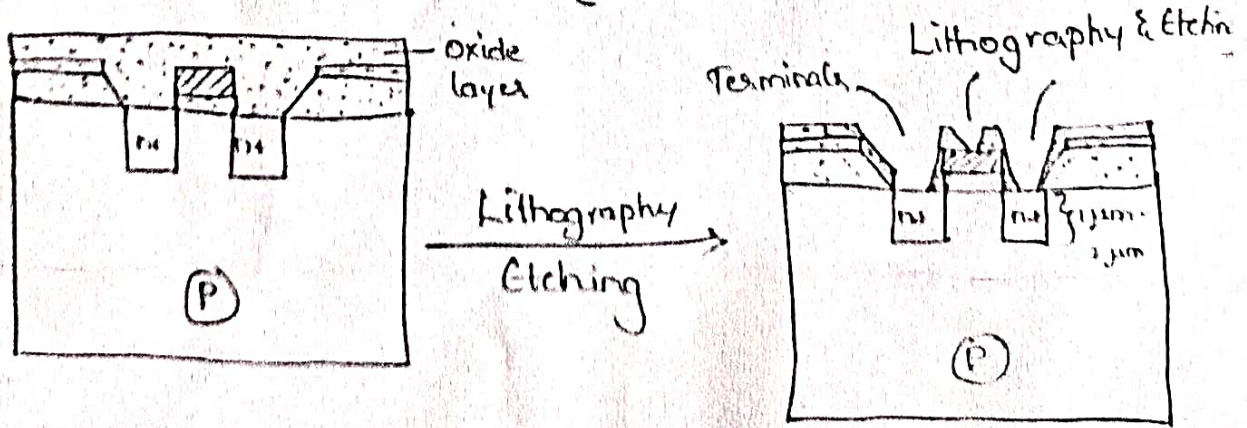 oxide
layer
n+
n+
P
Lithography
Etching
Terminals
Lithography & Etchin
n+
n+
1 μm.
P